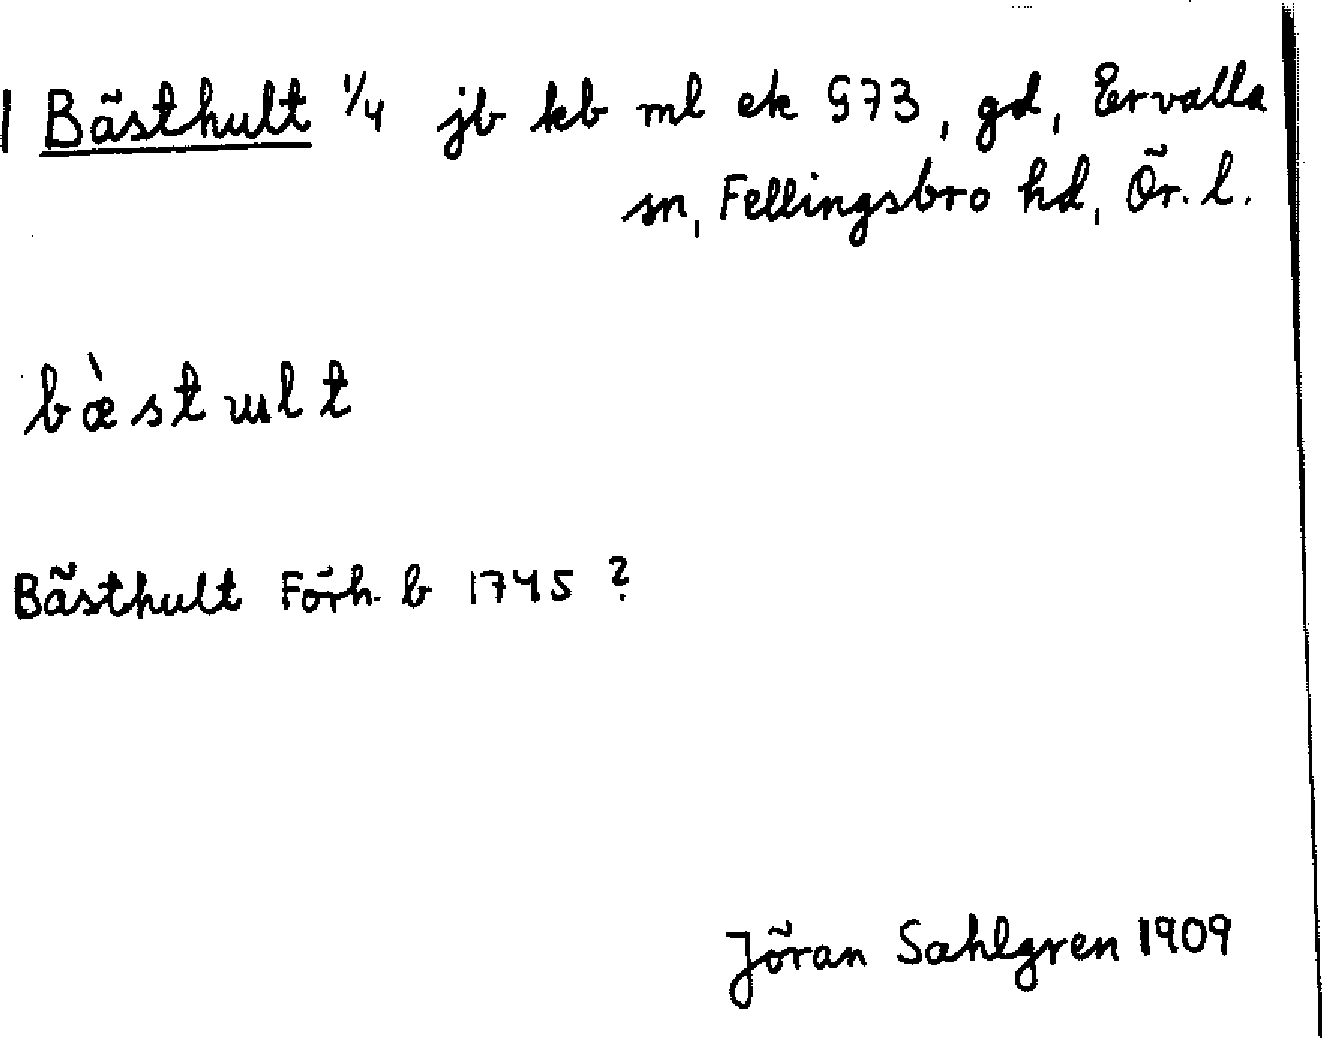 1 Bästhult 1/4 jb kb ml ek §73, gd, Ervalla
sn, Fellingsbro hd, Ör. l.
bæ̀stɯlt
Bästhult Förh. b 1745 ?
Jöran Sahlgren 1909